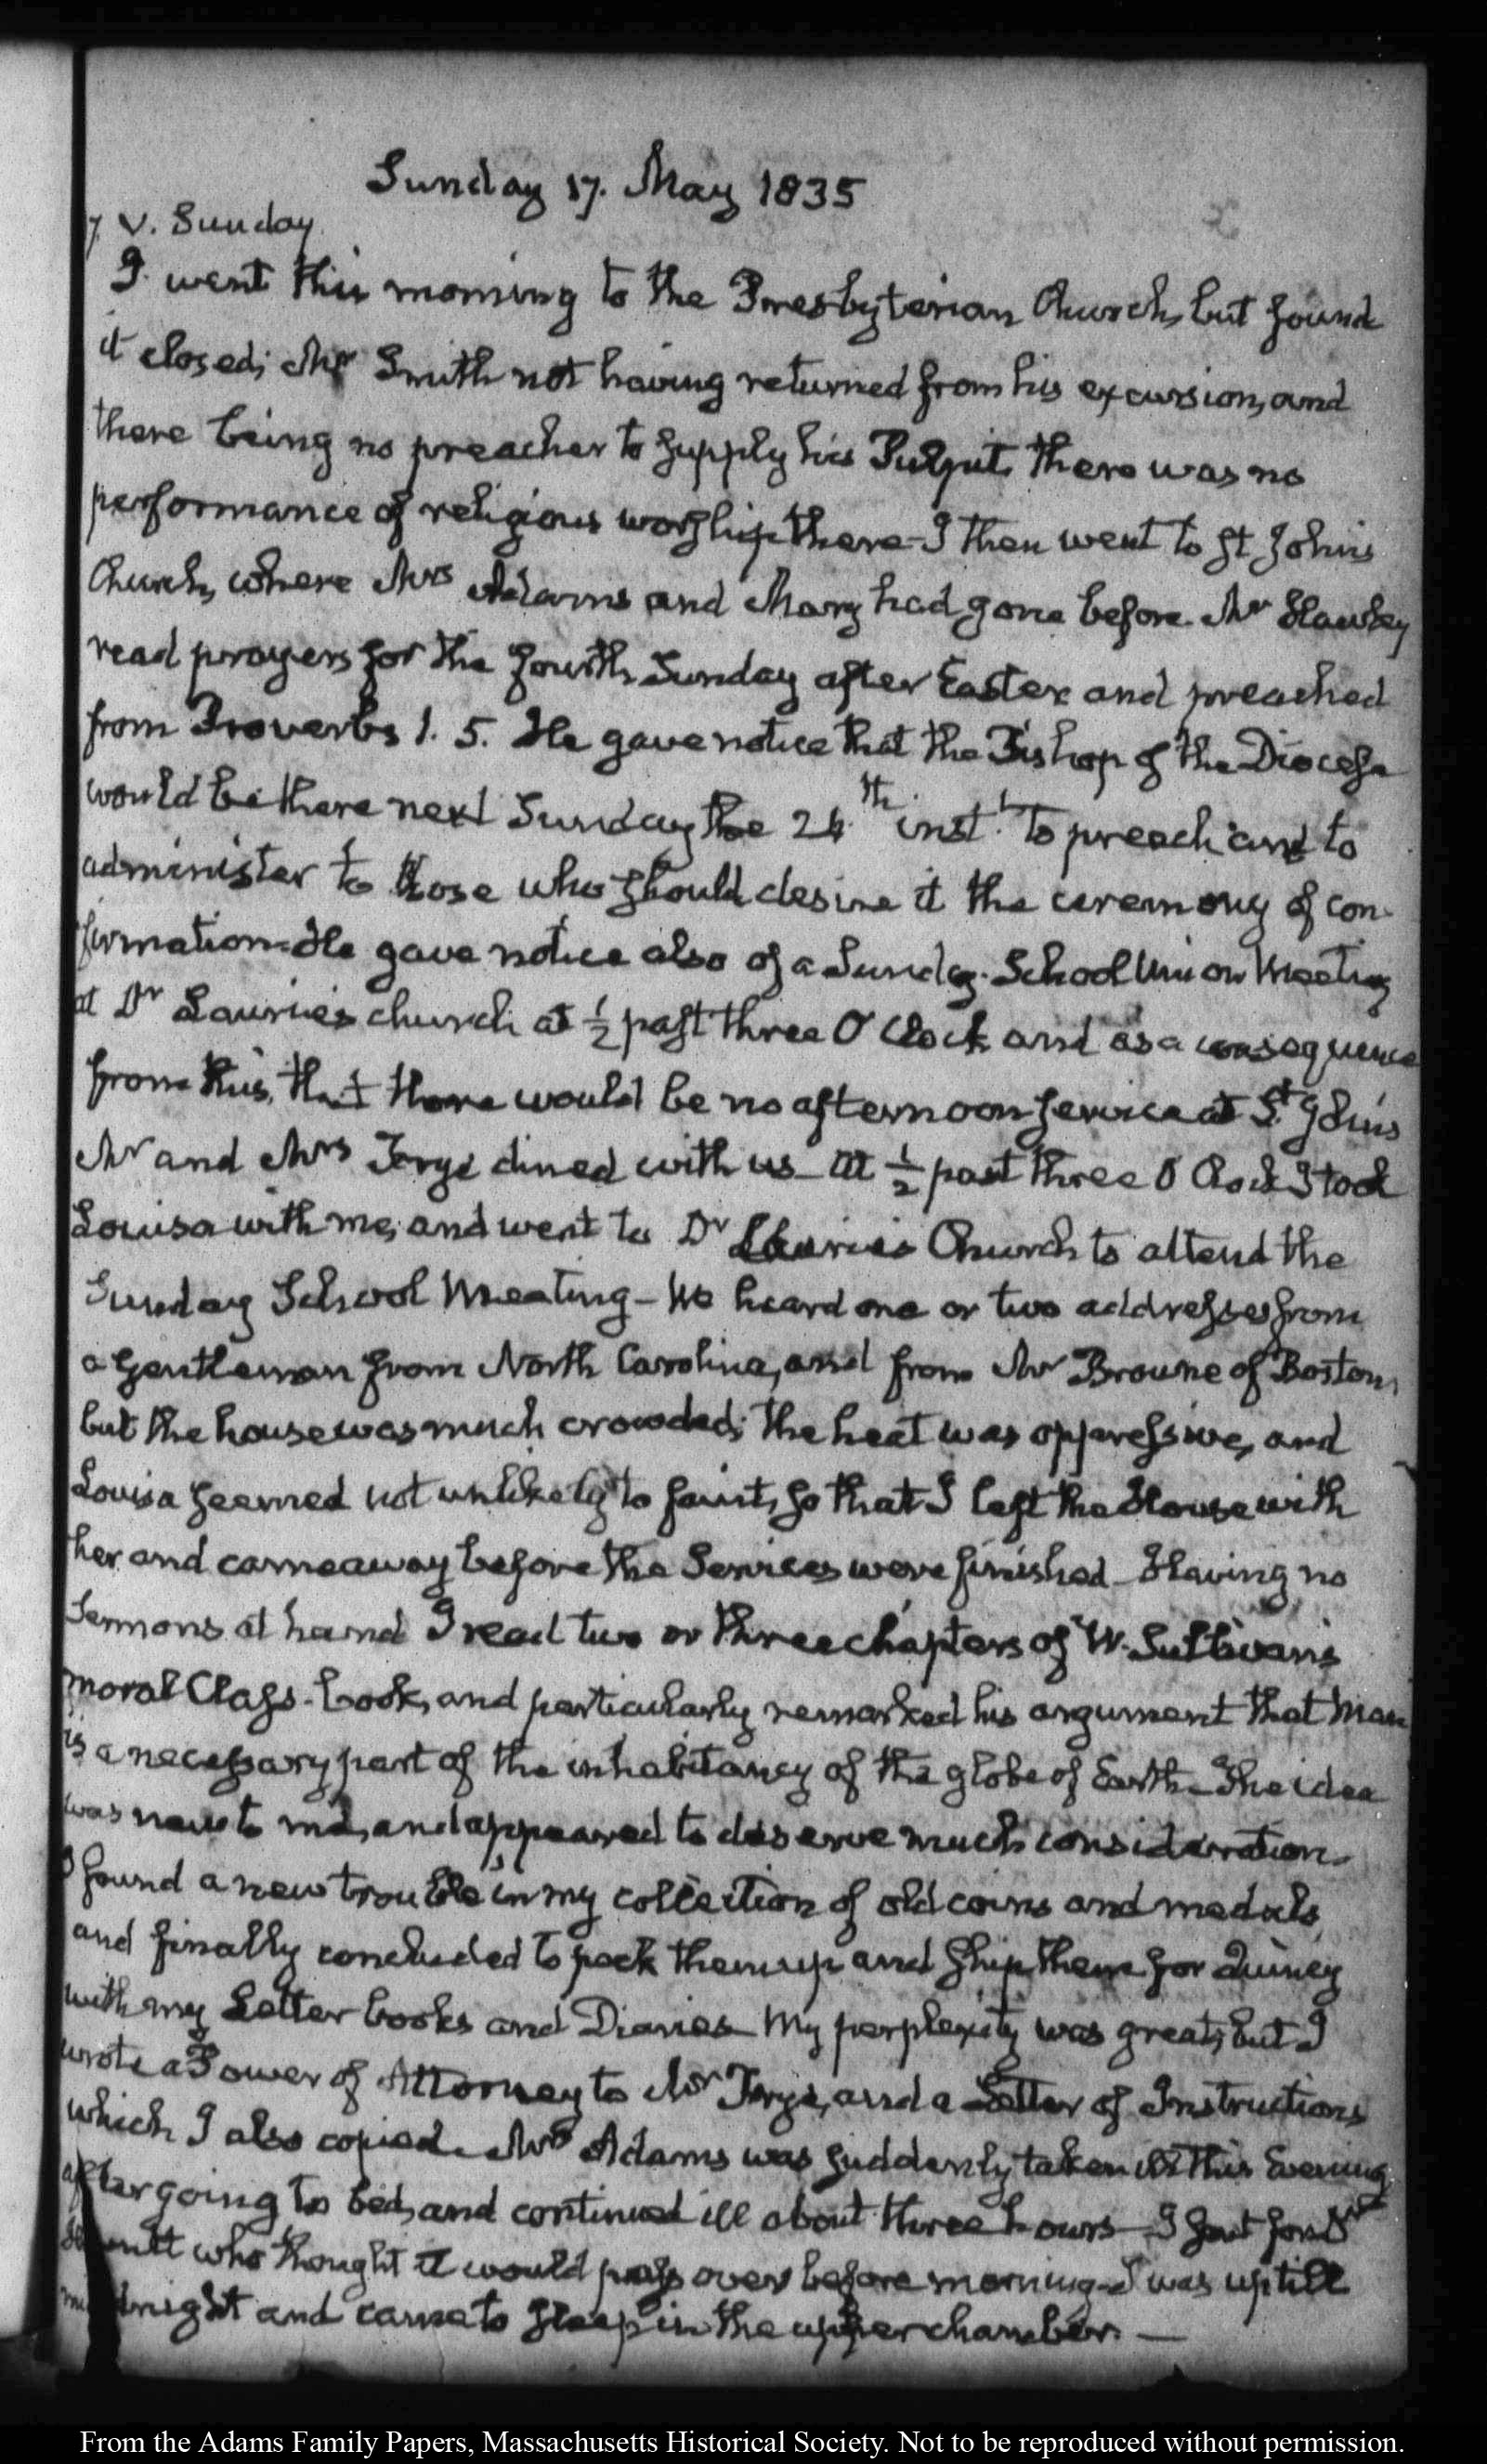 Sunday 17. May 1835
17. V. Sunday
I went this morning to the Presbyterian Church, but found
it closed; Mr Smith not having returned from his excursion, and
there being no preacher to supply his Pulpit, there was no
performance of religious worship there - I then went to St John's
Church, where Mrs Adams and Mary had gone before. Mr Hawley
read prayers for the fourth Sunday after Easter and preached
from Proverbs 1. 5. He gave notice that the Bishop of the Diocese
would be there next Sunday the 24th inst.t to preach and to
administer to those who should desire it the ceremony of con-
firmation - He gave notice also of a Sunday-School Union Meeting
at Dr Laurie's church at ½ past three O'Clock and as a consequence
from this, that there would be no afternoon service at St John's
Mr and Mrs Frye dined with us - At ½ past three O'Clock I took
Louisa with me, and went to Dr Laurie's Church to attend the
Sunday School Meeting - We heard one or two addresses from
a Gentleman from North Carolina, and from Mr Browne of Boston,
but the house was much crowded; the heat was oppressive, and
Louisa seemed not unlikely to faint, so that I left the House with
her and came away before the Services were finished - Having no
Sermons at hand I read two or three chapters of W. Sullivan's
moral Class-book, and particularly remarked his argument that man
is a necessary part of the inhabitancy of the globe of Earth - The idea
was new to me, and appeared to deserve much consideration.
I found a new trouble in my collection of old coins and medals
and finally concluded to pack them up and ship them for Quincy
with my Letter books and Diaries - My perplexity was great, but I
wrote a Power of Attorney to Mr Frye, and a Letter of Instructions
which I also copied. Mrs Adams was suddenly taken ill this Evening
after going to bed, and continued ill about three hours - I sent for Dr
who thought it would pass over before morning - I was up till
midnight and came to sleep in the upper chamber. —
From the Adams Family Papers, Massachusetts Historical Society. Not to be reproduced without permission.